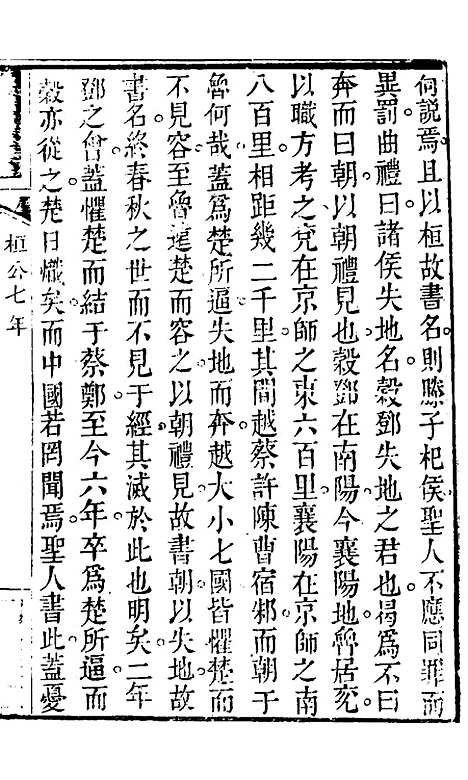 何說焉且以桓故書名則滕子杞侯聖人不應同罪而
異罰曲禮曰諸侯失地名穀鄧失地之君也曷爲不曰
奔而曰朝以朝禮見也穀鄧在南陽今襄陽地魯居兖
以職方考之兖在京師之東六百里襄陽在京師之南
八百里相距幾二千里其間越蔡許陳曹宿邾而朝于
魯何哉蓋爲楚所逼失地而奔越大小七國皆懼楚而
不見容至魯遠楚而容之以朝禮見故書朝以失地故
書名終春秋之世而不見于經其滅於此也明矣二年
鄧之會蓋懼楚而結于蔡鄭至今六年卒爲楚所逼而
穀亦從之楚日熾矣而中國若罔聞焉聖人書此蓋憂
桓公七年